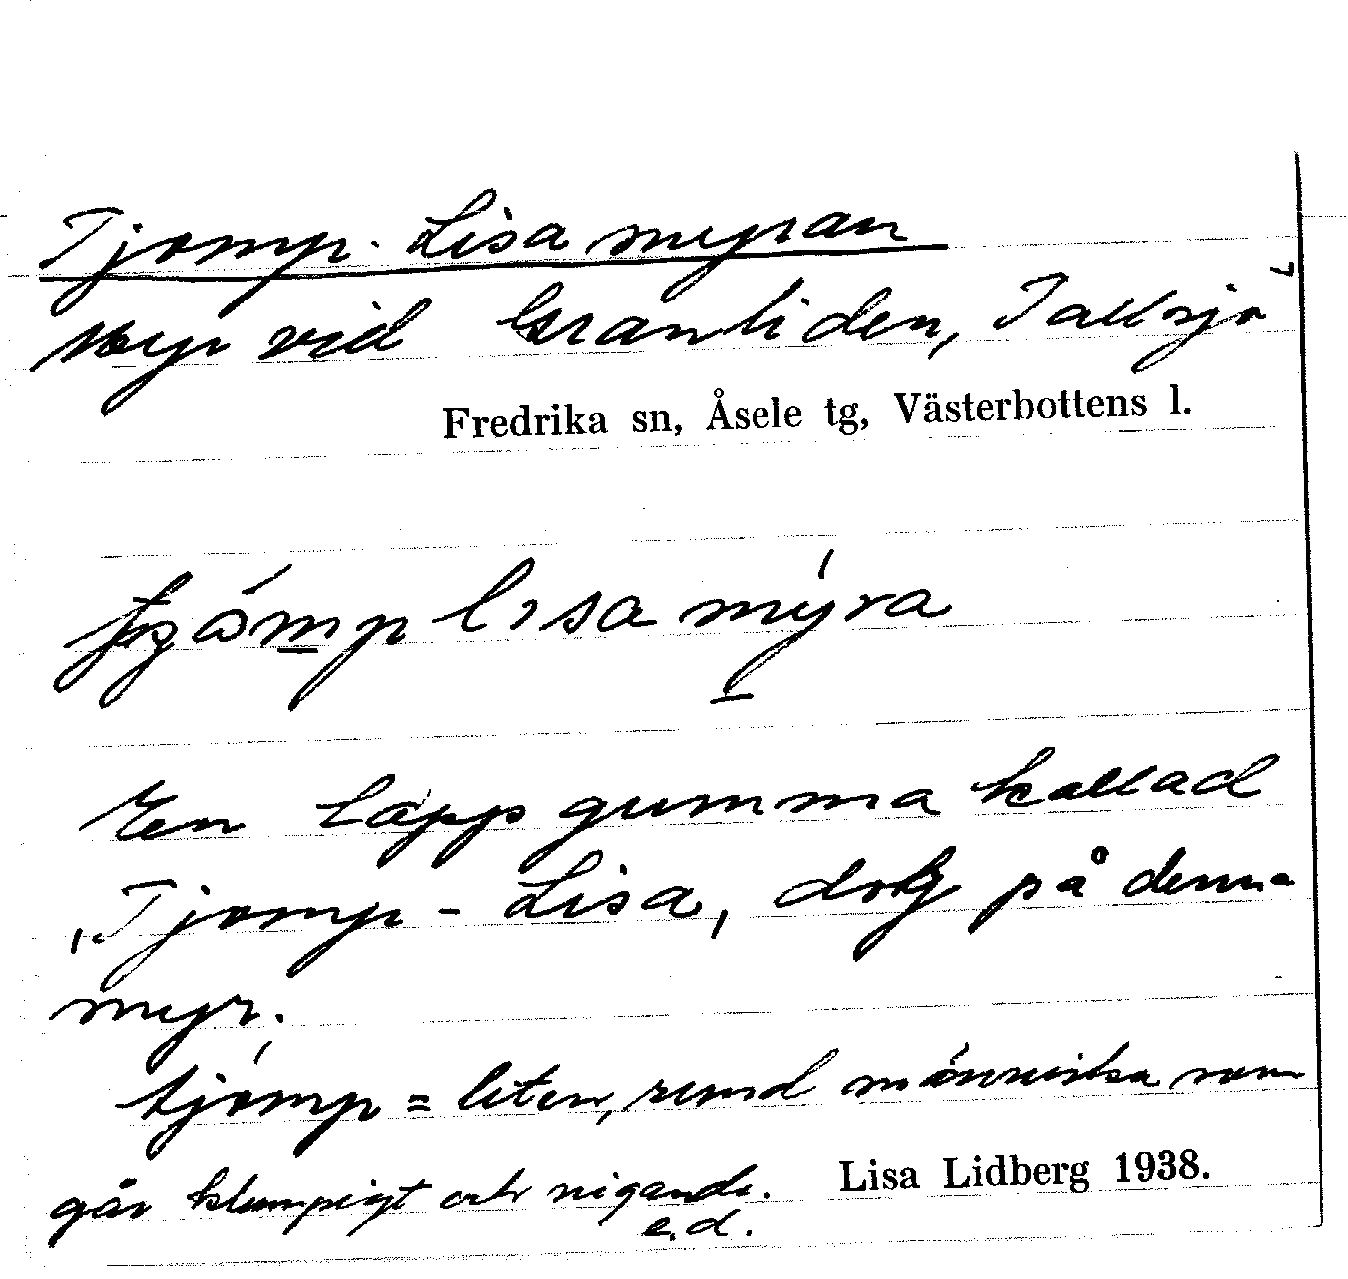 Tjomp-Lisamyran
Myr vid Granliden, Tallsjö
Fredrika sn, Åsele tg, Västerbottens l.
lisamýra
En lappgumma kallad
"Tjomp-Lisa, dog på denna
myr.
tjómp = liten, rund människa som
går klumpigt och nigande.
Lisa Lidberg 1938.
e.d.